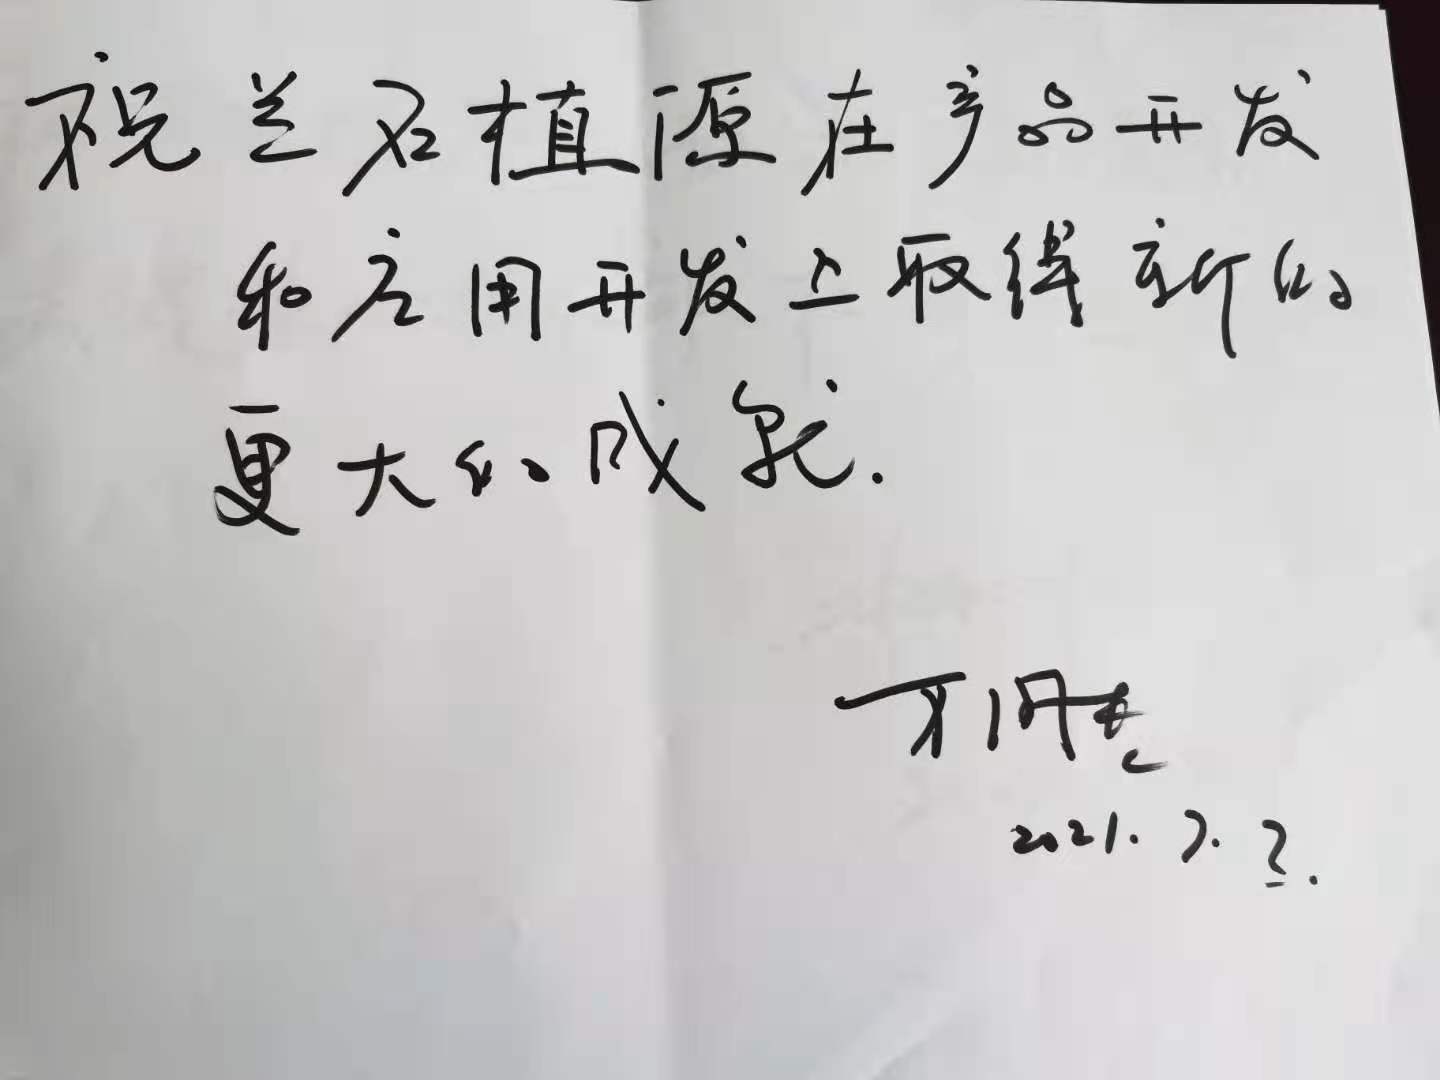 祝兰石植源在产品开发
和应用开发上取得新的
更大的成就.
2021.7.2.